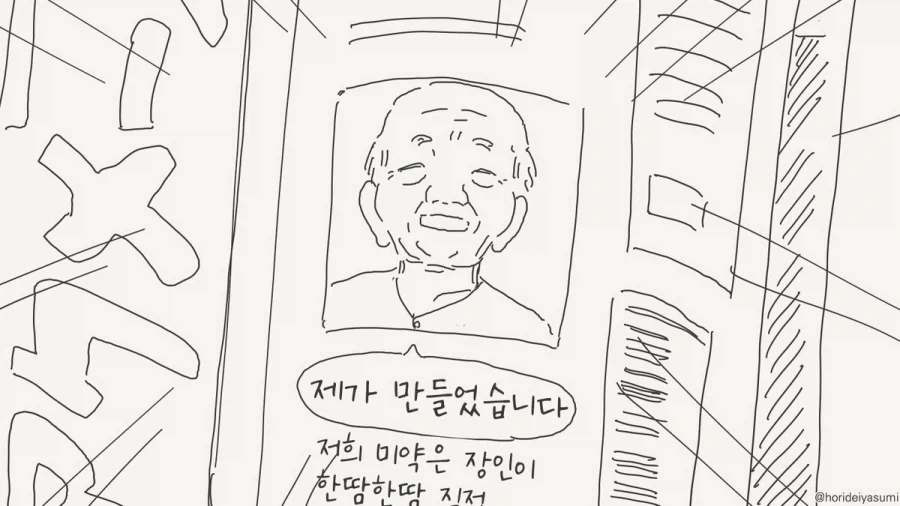 제가 만들었습니다
저희 미약은 장인이
한땀한땀 직접
@horideiyasumi